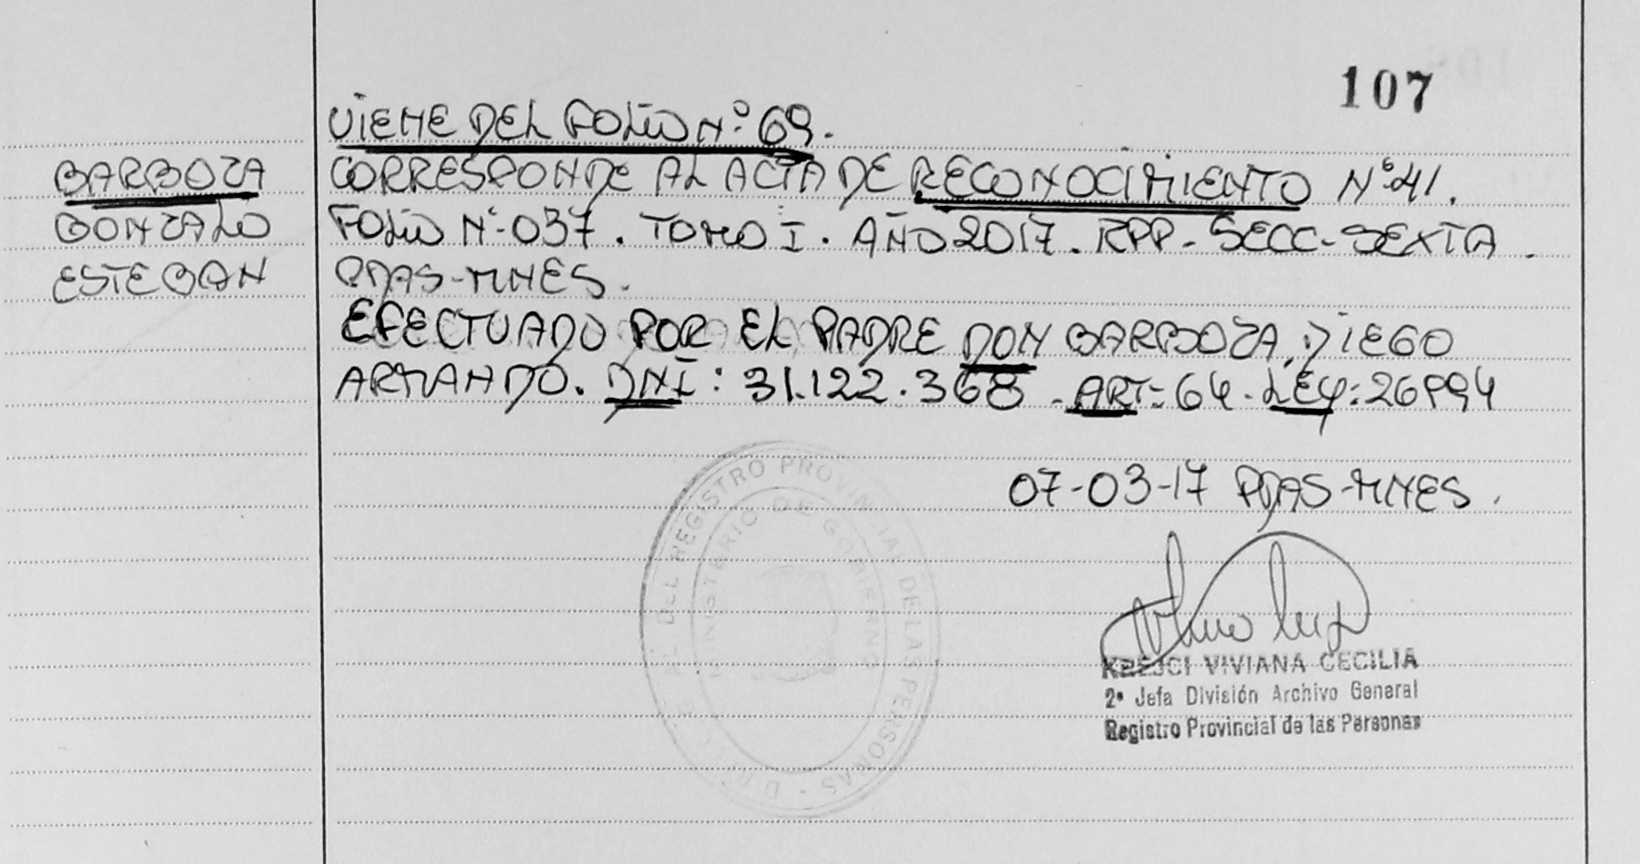 107
VIENE DEL FOLIO Nº 69.
BARBOZA
GONZALO
ESTEBAN
CORRESPONDE AL ACTA DE RECONOCIMIENTO Nº 41.
FOLIO Nº 037. TOMO I. AÑO 2017. RPP. SECC. SEXTA.
PDAS-MNES.
EFECTUADO POR EL PADRE DON BARBOZA, DIEGO
ARMANDO. DNI: 31.122.368. ART: 64. LEY: 26994
07-03-17 PDAS-MNES.
DEL REGISTRO PROVINCIAL DE LAS PERSONAS
MINISTERIO DE GOBIERNO
KREJCI VIVIANA CECILIA
2ª Jefa División Archivo General
Registro Provincial de las Personas